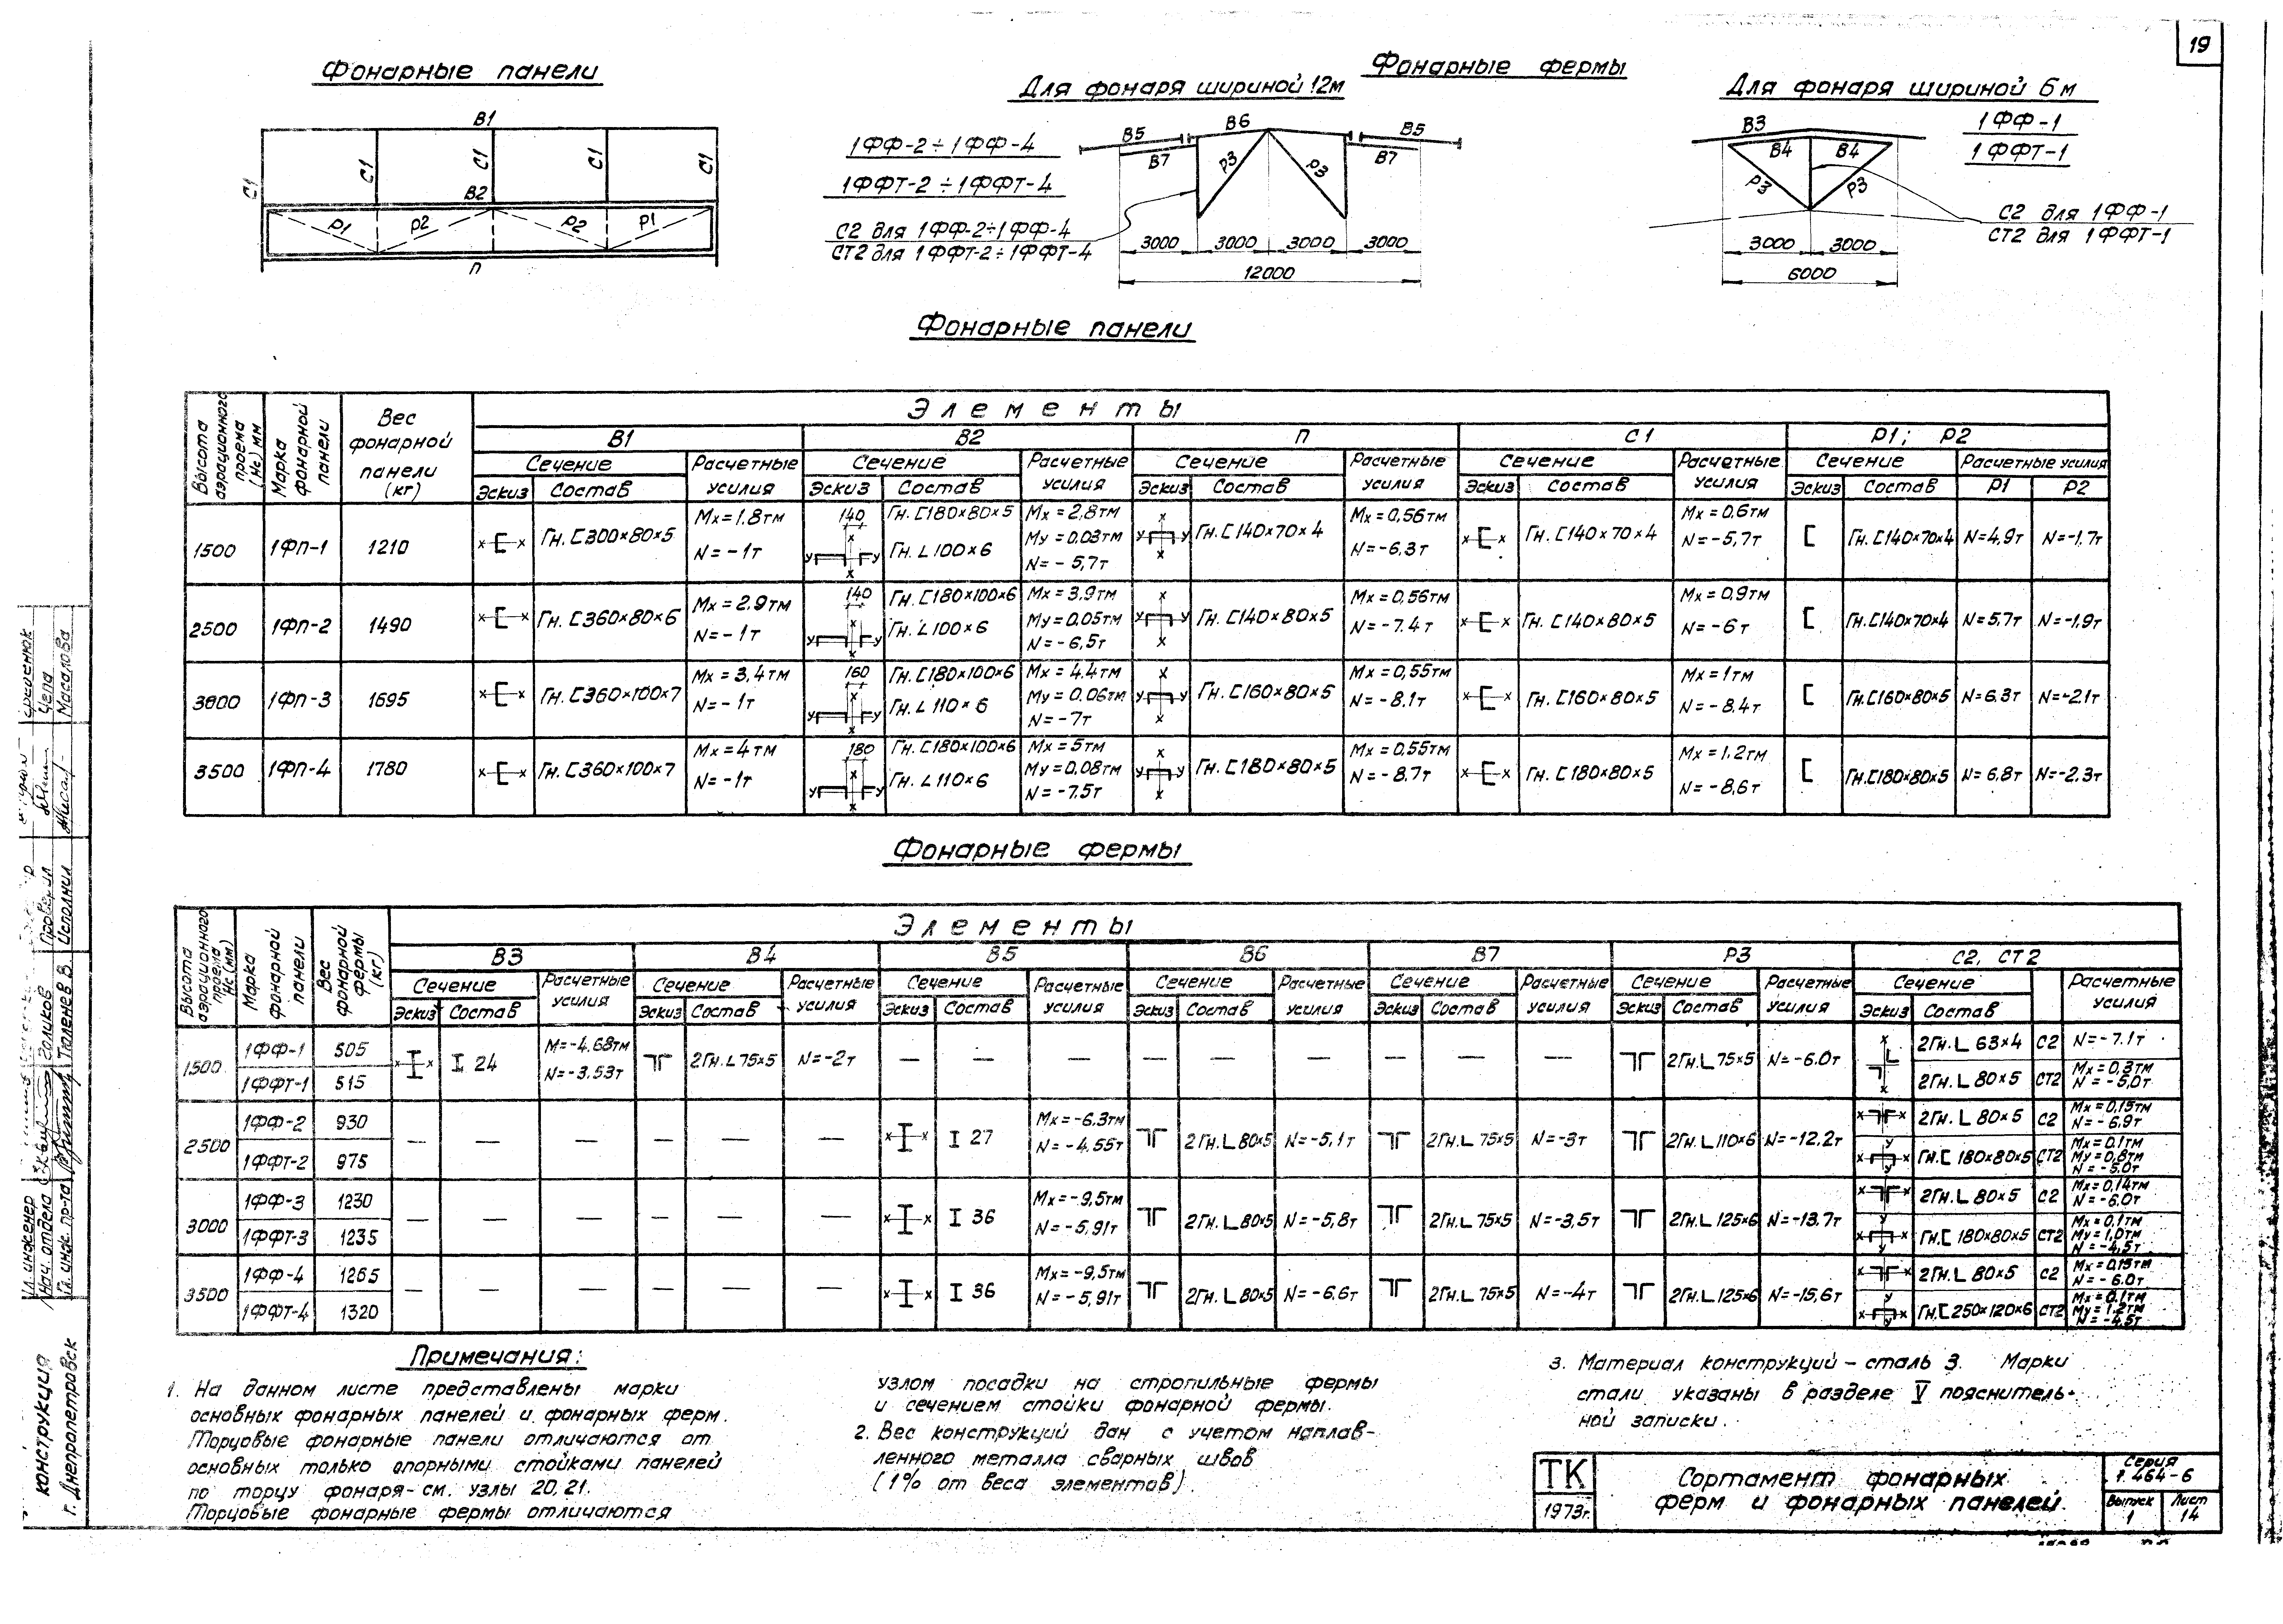 19
Фонарные панели
В1
С1 С1 С1 С1 С1
В2
Р1 Р2 Р2 Р1
П
Фонарные фермы
Для фонаря шириной 12м
1ФФ-2÷1ФФ-4
1ФФТ-2÷1ФФТ-4
С2 для 1ФФ-2÷1ФФ-4
СТ2 для 1ФФТ-2÷1ФФТ-4
В5 В6 В5
В7 Р3 Р3 В7
3000 3000 3000 3000
12000
Для фонаря шириной 6м
1ФФ-1
1ФФТ-1
В3
В4 В4
Р3 Р3
С2 для 1ФФ-1
СТ2 для 1ФФТ-1
3000 3000
6000
Фонарные панели
Высота аэрационного проема (Нс) мм
Марка фонарной панели
Вес фонарной панели (кг)
Элементы
В1 В2 П С1 Р1; Р2
Сечение Расчетные усилия Сечение Расчетные усилия Сечение Расчетные усилия Сечение Расчетные усилия Сечение Расчетные усилия
Эскиз Состав Эскиз Состав Эскиз Состав Эскиз Состав Эскиз Состав Р1 Р2
1500 1ФП-1 1210 Гн.[300×80×5 Мх=1,8тм N=-1т 140 Гн.[180×80×5 Гн.L100×6 Мх=2,8тм Му=0.03тм N=-5,7т Гн.[140×70×4 Мх=0,56тм N=-6,3т Гн.[140×70×4 Мх=0,6тм N=-5,7т Гн.[140×70×4 N=4,9т N=-1,7т
2500 1ФП-2 1490 Гн.[360×80×6 Мх=2,9тм N=-1т 140 Гн.[180×100×6 Гн.L100×6 Мх=3,9тм Му=0,05тм N=-6,5т Гн.[140×80×5 Мх=0,56тм N=-7.4т Гн.[140×80×5 Мх=0,9тм N=-6т Гн.[140×70×4 N=5,7т N=-1,9т
3000 1ФП-3 1695 Гн.[360×100×7 Мх=3,4тм N=-1т 160 Гн.[180×100×6 Гн.L110×6 Мх=4.4тм Му=0,06тм N=-7т Гн.[160×80×5 Мх=0,55тм N=-8.1т Гн.[160×80×5 Мх=1тм N=-8.4т Гн.[160×80×5 N=6.3т N=-2.1т
3500 1ФП-4 1780 Гн.[360×100×7 Мх=4тм N=-1т 180 Гн.[180×100×6 Гн.L110×6 Мх=5тм Му=0,08тм N=-7.5т Гн.[180×80×5 Мх=0,55тм N=-8.7т Гн.[180×80×5 Мх=1.2тм N=-8,6т Гн.[180×80×5 N=6,8т N=-2,3т
Фонарные фермы
Высота аэрационного проема Нс (мм)
Марка фонарной панели
Вес фонарной фермы (кг)
Элементы
В3 В4 В5 В6 В7 Р3 С2, СТ2
Сечение Расчетные усилия Сечение Расчетные усилия Сечение Расчетные усилия Сечение Расчетные усилия Сечение Расчетные усилия Сечение Расчетные усилия Сечение Расчетные усилия
Эскиз Состав Эскиз Состав Эскиз Состав Эскиз Состав Эскиз Состав Эскиз Состав Эскиз Состав
1500 1ФФ-1 505 I 24 М=-4,68тм N=-3.53т 2Гн.L75×5 N=-2т — — — — — — — — — 2Гн.L75×5 N=-6.0т 2Гн.L 63×4 С2 N=-7.1т
1ФФТ-1 515 2Гн.L 80×5 СТ2 Мх=0,3тм N=-5,0т
2500 1ФФ-2 930 — — — — — — I 27 Мх=-6,3тм N=-4,55т 2Гн.L80×5 N=-5,1т 2Гн.L75×5 N=-3т 2Гн.L110×6 N=-12.2т 2Гн.L 80×5 С2 Мх=0,15тм N=-6,9т
1ФФТ-2 975 Гн.[180×80×5 СТ2 Мх=0.1тм Му=0,8тм N=-5.0т
3000 1ФФ-3 1230 — — — — — — I 36 Мх=-9,5тм N=-5,91т 2Гн.L80×5 N=-5,8т 2Гн.L75×5 N=-3,5т 2Гн.L125×6 N=-13.7т 2Гн.L 80×5 С2 Мх=0,14тм N=-6.0т
1ФФТ-3 1235 Гн.[180×80×5 СТ2 Мх=0.1тм Му=1,0тм N=-4,5т
3500 1ФФ-4 1265 — — — — — — I 36 Мх=-9,5тм N=-5,91т 2Гн.L80×5 N=-6,6т 2Гн.L75×5 N=-4т 2Гн.L125×6 N=-15,6т 2Гн.L 80×5 С2 Мх=0,15тм N=-6.0т
1ФФТ-4 1320 Гн.[250×120×6 СТ2 Мх=0.1тм Му=1.2тм N=-4,5т
Примечания:
1. На данном листе представлены марки
основных фонарных панелей и фонарных ферм.
Торцовые фонарные панели отличаются от
основных только опорными стойками панелей
по торцу фонаря-см. узлы 20,21.
Торцовые фонарные фермы отличаются
узлом посадки на стропильные фермы
и сечением стойки фонарной фермы.
2. Вес конструкций дан с учетом наплав-
ленного металла сварных швов
(1% от веса элементов).
3. Материал конструкций – сталь 3. Марки
стали указаны в разделе V пояснитель-
ной записки.
ТК
1973г.
Сортамент фонарных
ферм и фонарных панелей.
Серия
1.464-6
Выпуск
1
Лист
14
Чепа
Масалова
Проверил
Исполнил
Голиков
Тюленев В
Гл. инженер
Нач. отдела
Гл. инж. пр-та
конструкция
г. Днепропетровск